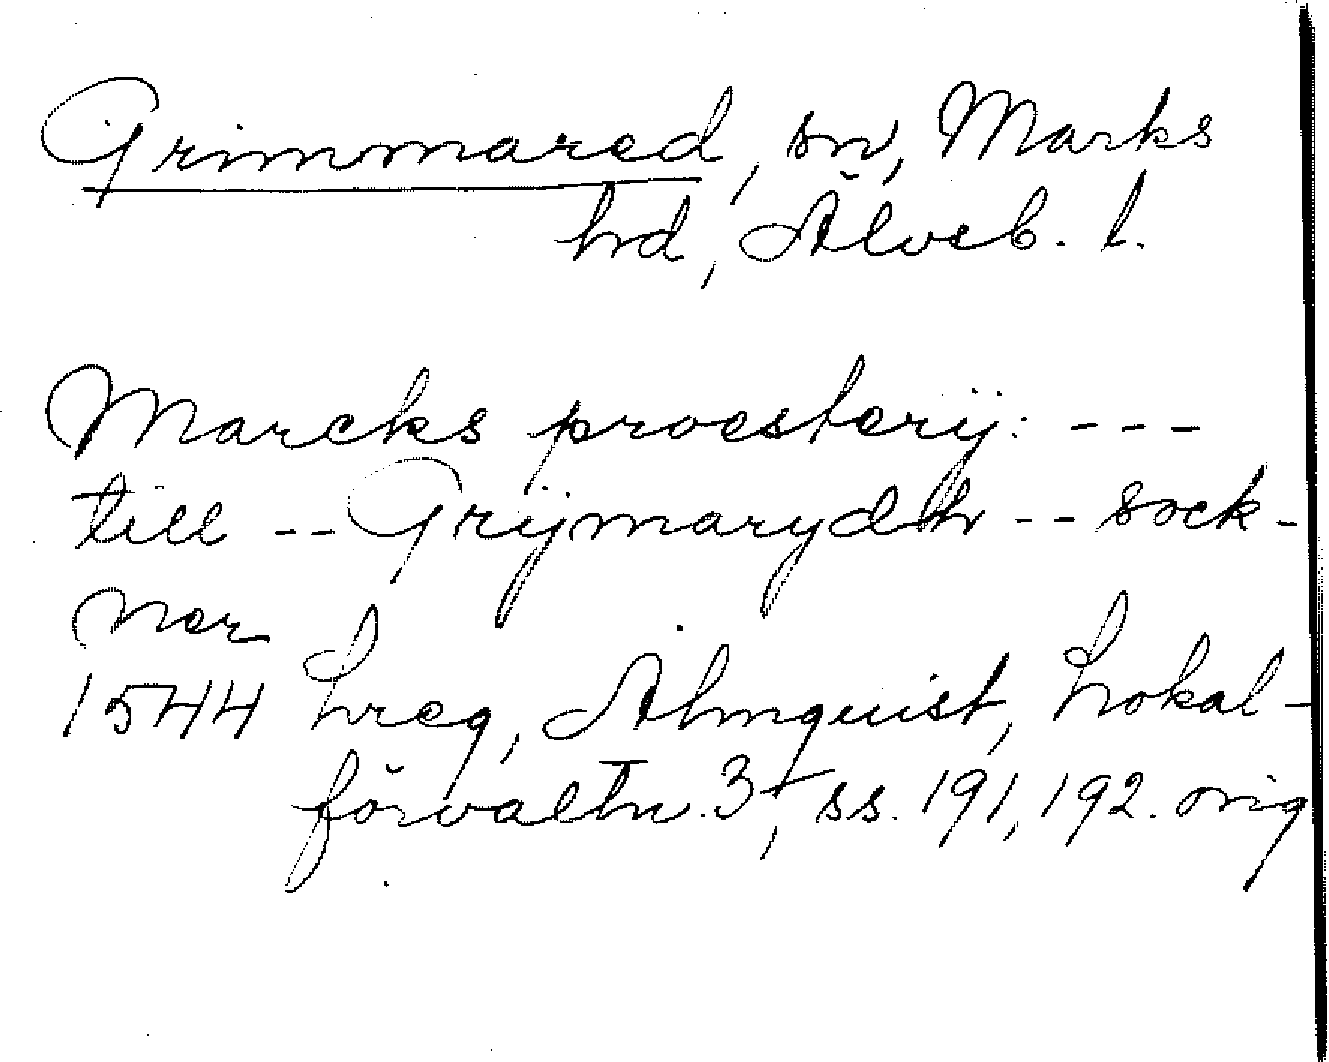 Grimmared, sn, Marks
hd, Älvsb. l.
Marcks proesterij: ---
till -- Grijmarydh -- sock-
ner
1544 Lreg, Almquist, Lokal-
förvaltn. 3, ss. 191, 192. orig